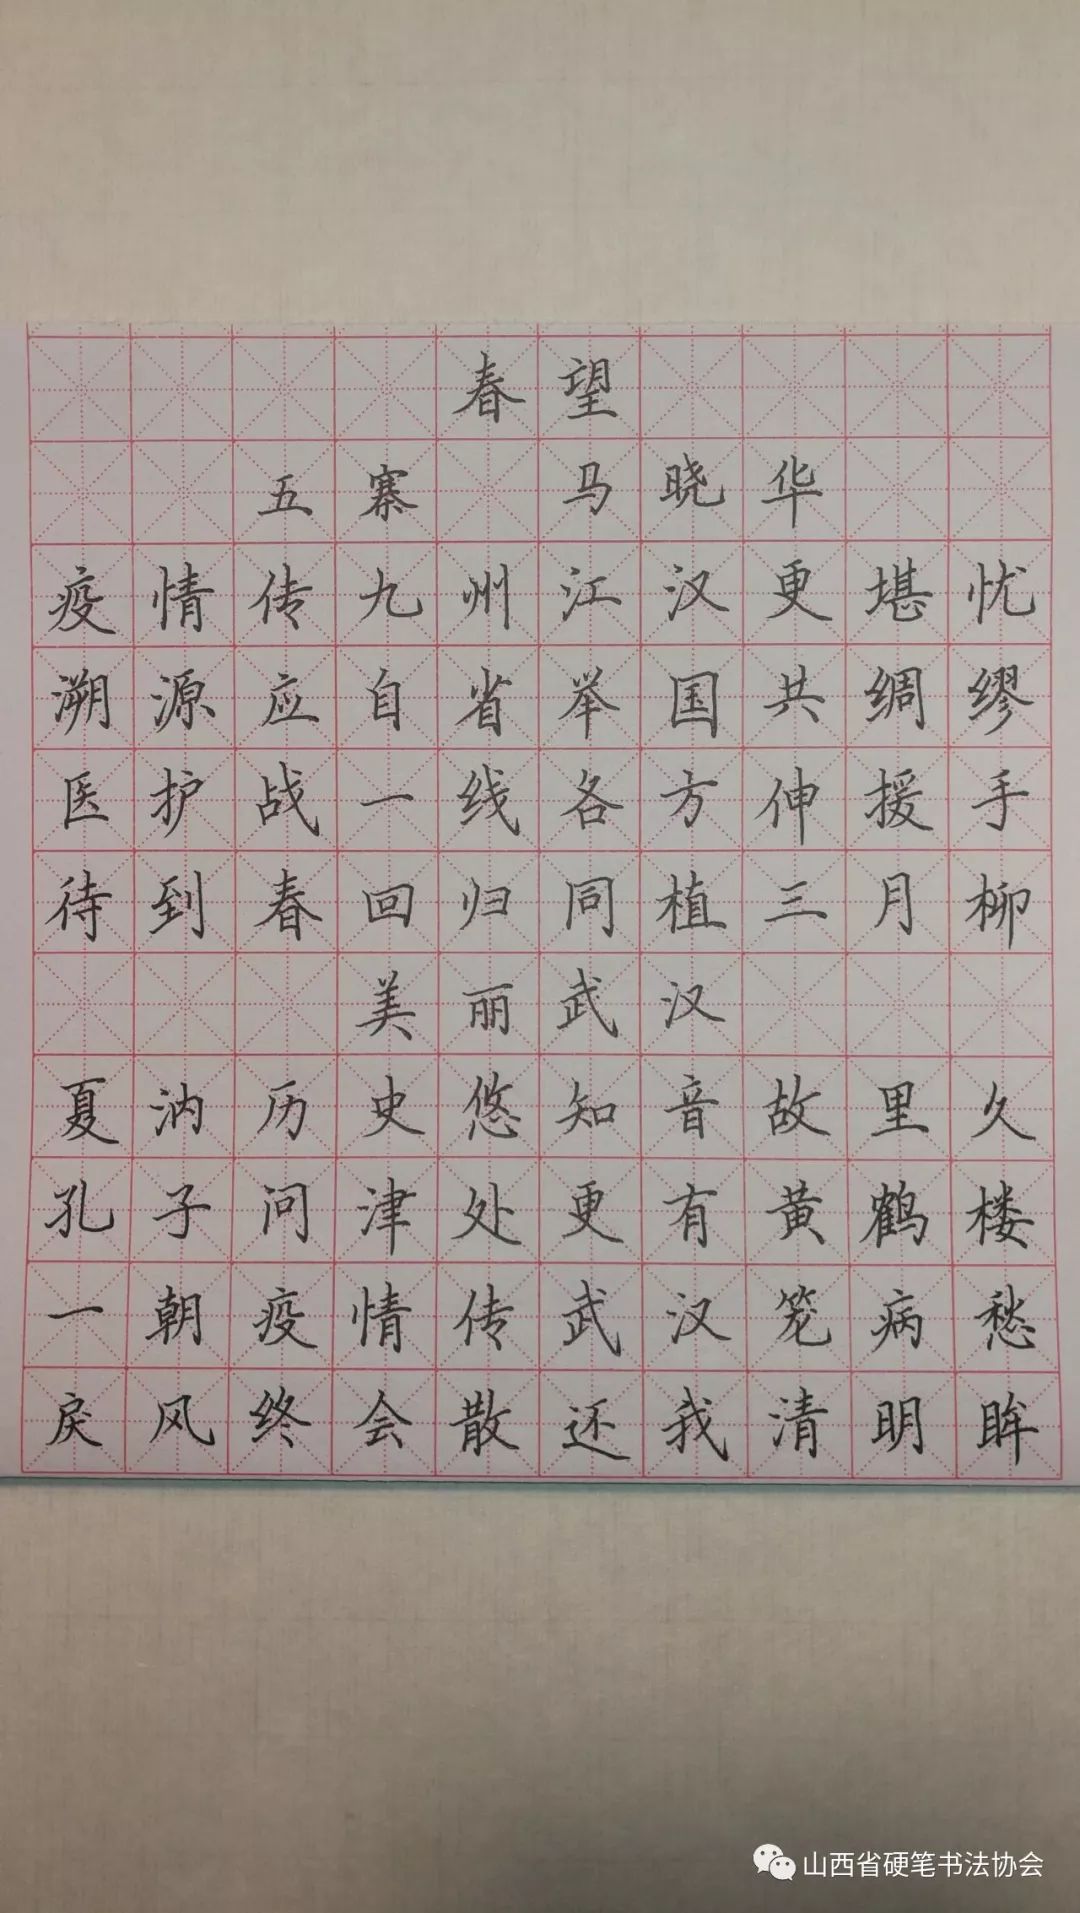 春望
五寨 马晓华
疫情传九州江汉更堪忧
溯源应自省举国共绸缪
医护战一线各方伸援手
待到春回归同植三月柳
美丽武汉
夏汭历史悠知音故里久
孔子问津处更有黄鹤楼
一朝疫情传武汉笼病愁
戾风终会散还我清明眸
山西省硬笔书法协会